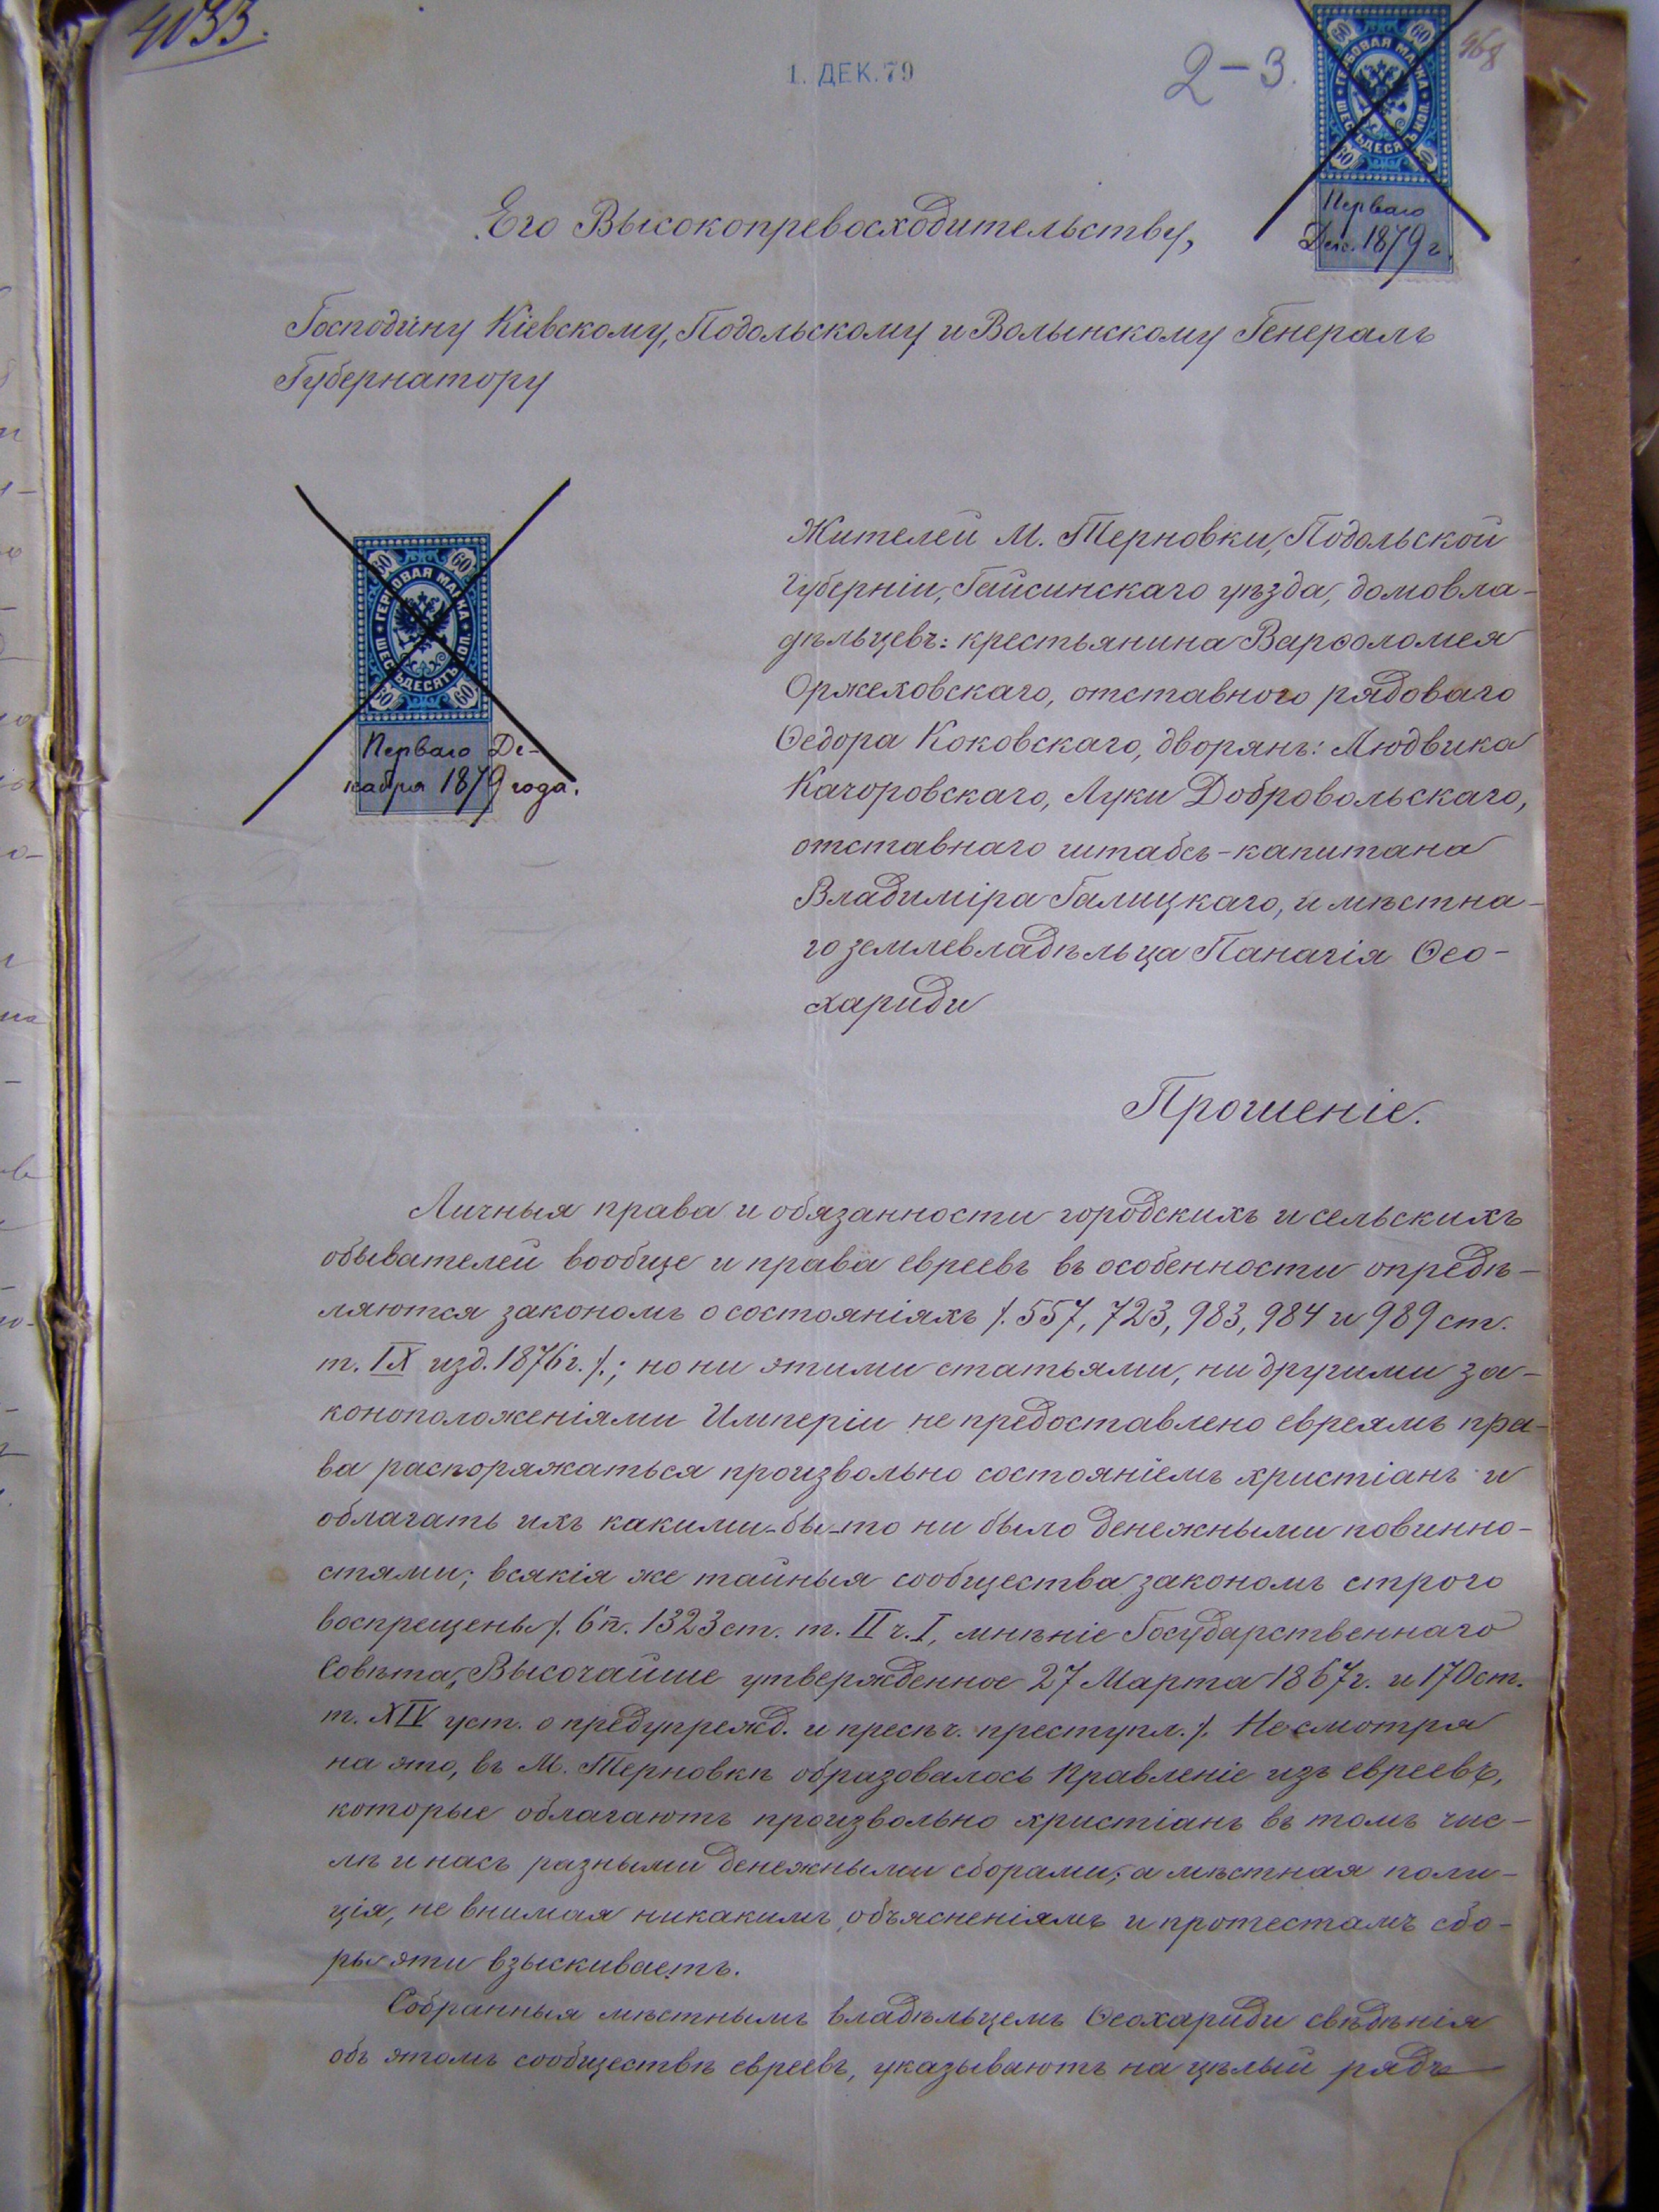 4033.
1. ДЕК. 79
2-3.
968
60 60
ГЕРБОВАЯ МАРКА
ШЕСТЬДЕСЯТЪ КОП.
60 60
Перваго
Дек. 1879 г.
Его Высокопревосходительству,
Господину Кіевскому, Подольскому и Волынскому Генералъ
Губернатору
60 60
ГЕРБОВАЯ МАРКА
ШЕСТЬДЕСЯТЪ КОП.
60 60
Перваго Де-
кабря 1879 года.
Жителей М. Терновки, Подольской
Губерніи, Гайсинскаго уѣзда, домовла-
дѣльцевъ: крестьянина Варѳоломея
Оржеховскаго, отставного рядоваго
Ѳедора Коковскаго, дворянъ: Людвика
Качоровскаго, Луки Добровольскаго,
отставнаго штабсъ-капитана
Владиміра Галицкаго, и мѣстна-
го землевладѣльца Панагія Ѳео-
хариди
Прошеніе.
Личныя права и обязанности городскихъ и сельскихъ
обывателей вообще и права евреевъ въ особенности опредѣ-
ляются закономъ о состояніяхъ /. 557, 723, 983, 984 и 989 ст.
т. IX изд. 1876 г. /.; но ни этими статьями, ни другими за-
коноположеніями Имперіи не предоставлено евреямъ пра-
ва распоряжаться произвольно состояніемъ христіанъ и
облагать ихъ какими-бы-то ни было денежными повинно-
стями; всякія же тайныя сообщества закономъ строго
воспрещены /. 6 п. 1323 ст. т. II ч. I, мнѣніе Государственнаго
Совѣта, Высочайше утвержденное 27 Марта 1867 г. и 170 ст.
т. XIV уст. о предупрежд. и пресѣч. преступл. /. Несмотря
на это, въ М. Терновкѣ образовалось Правленіе изъ евреевъ,
которые облагаютъ произвольно христіанъ въ томъ чис-
лѣ и насъ разными денежными сборами; а мѣстная поли-
ція, не внимая никакимъ объясненіямъ и протестамъ сбо-
ры эти взыскиваетъ.
Собранныя мѣстнымъ владѣльцемъ Ѳеохариди свѣдѣнія
объ этомъ сообществѣ евреевъ, указываютъ на цѣлый рядъ